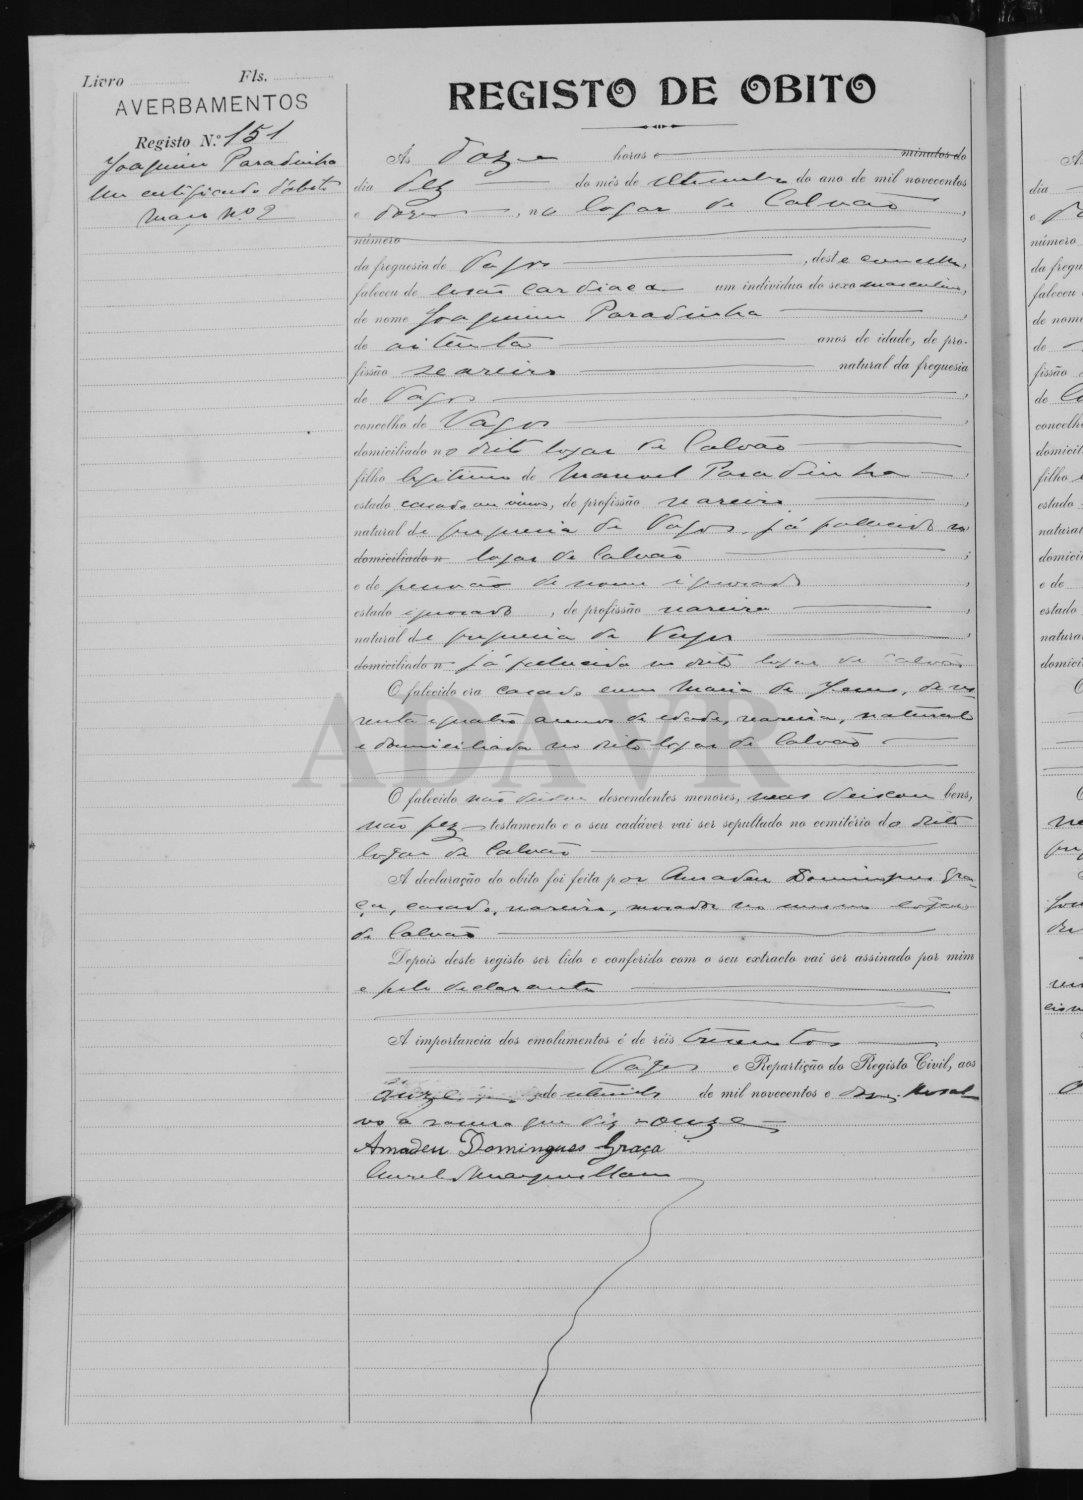 Livro Fls.
AVERBAMENTOS
Registo N.º 151
Joaquim Paradinha
Um certificado d'obito
Maço nº 2
REGISTO DE OBITO
Ás doze horas e minutos do
dia dez do mês de setembro do ano de mil novecentos
e doze, no logar de Calvão,
número
da freguesia de Vagos, deste concelho,
faleceu de lesão cardiaca um individuo do sexo masculino,
de nome Joaquim Paradinha,
de oitenta anos de idade, de pro-
fissão seareiro natural da freguesia
de Vagos,
concelho de Vagos
domiciliado no dito logar de Calvão
filho legitimo de Manoel Paradinha,
estado casado ou viuvo, de profissão seareiro,
natural de freguesia de Vagos, já falecido no
domiciliado n logar de Calvão;
e de pessoa de nome ignorado,
estado ignorado, de profissão seareira,
natural de freguesia de Vagos,
domiciliado n já falecida no dito logar de Calvão
O falecido era casado com Maria de Jesus, de
e quatro annos de idade, seareira, natural
e domiciliada no dito logar de Calvão
ADAVR
O falecido não deixou descendentes menores, mas deixou bens,
não fez testamento e o seu cadáver vai ser sepultado no cemitério do dito
logar de Calvão
A declaração do obito foi feita por Amadeu Domingues Gra-
ça, casado, seareiro, morador no mesmo logar
de Calvão
Depois deste registo ser lido e conferido com o seu extracto vai ser assinado por mim
e pelo declarante
A importancia dos emolumentos é de réis trezentos
Vagos e Repartição do Registo Civil, aos
onze de setembro de mil novecentos e doze. Ressal-
vo a rasura que diz = onze =
Amadeu Domingues Graça